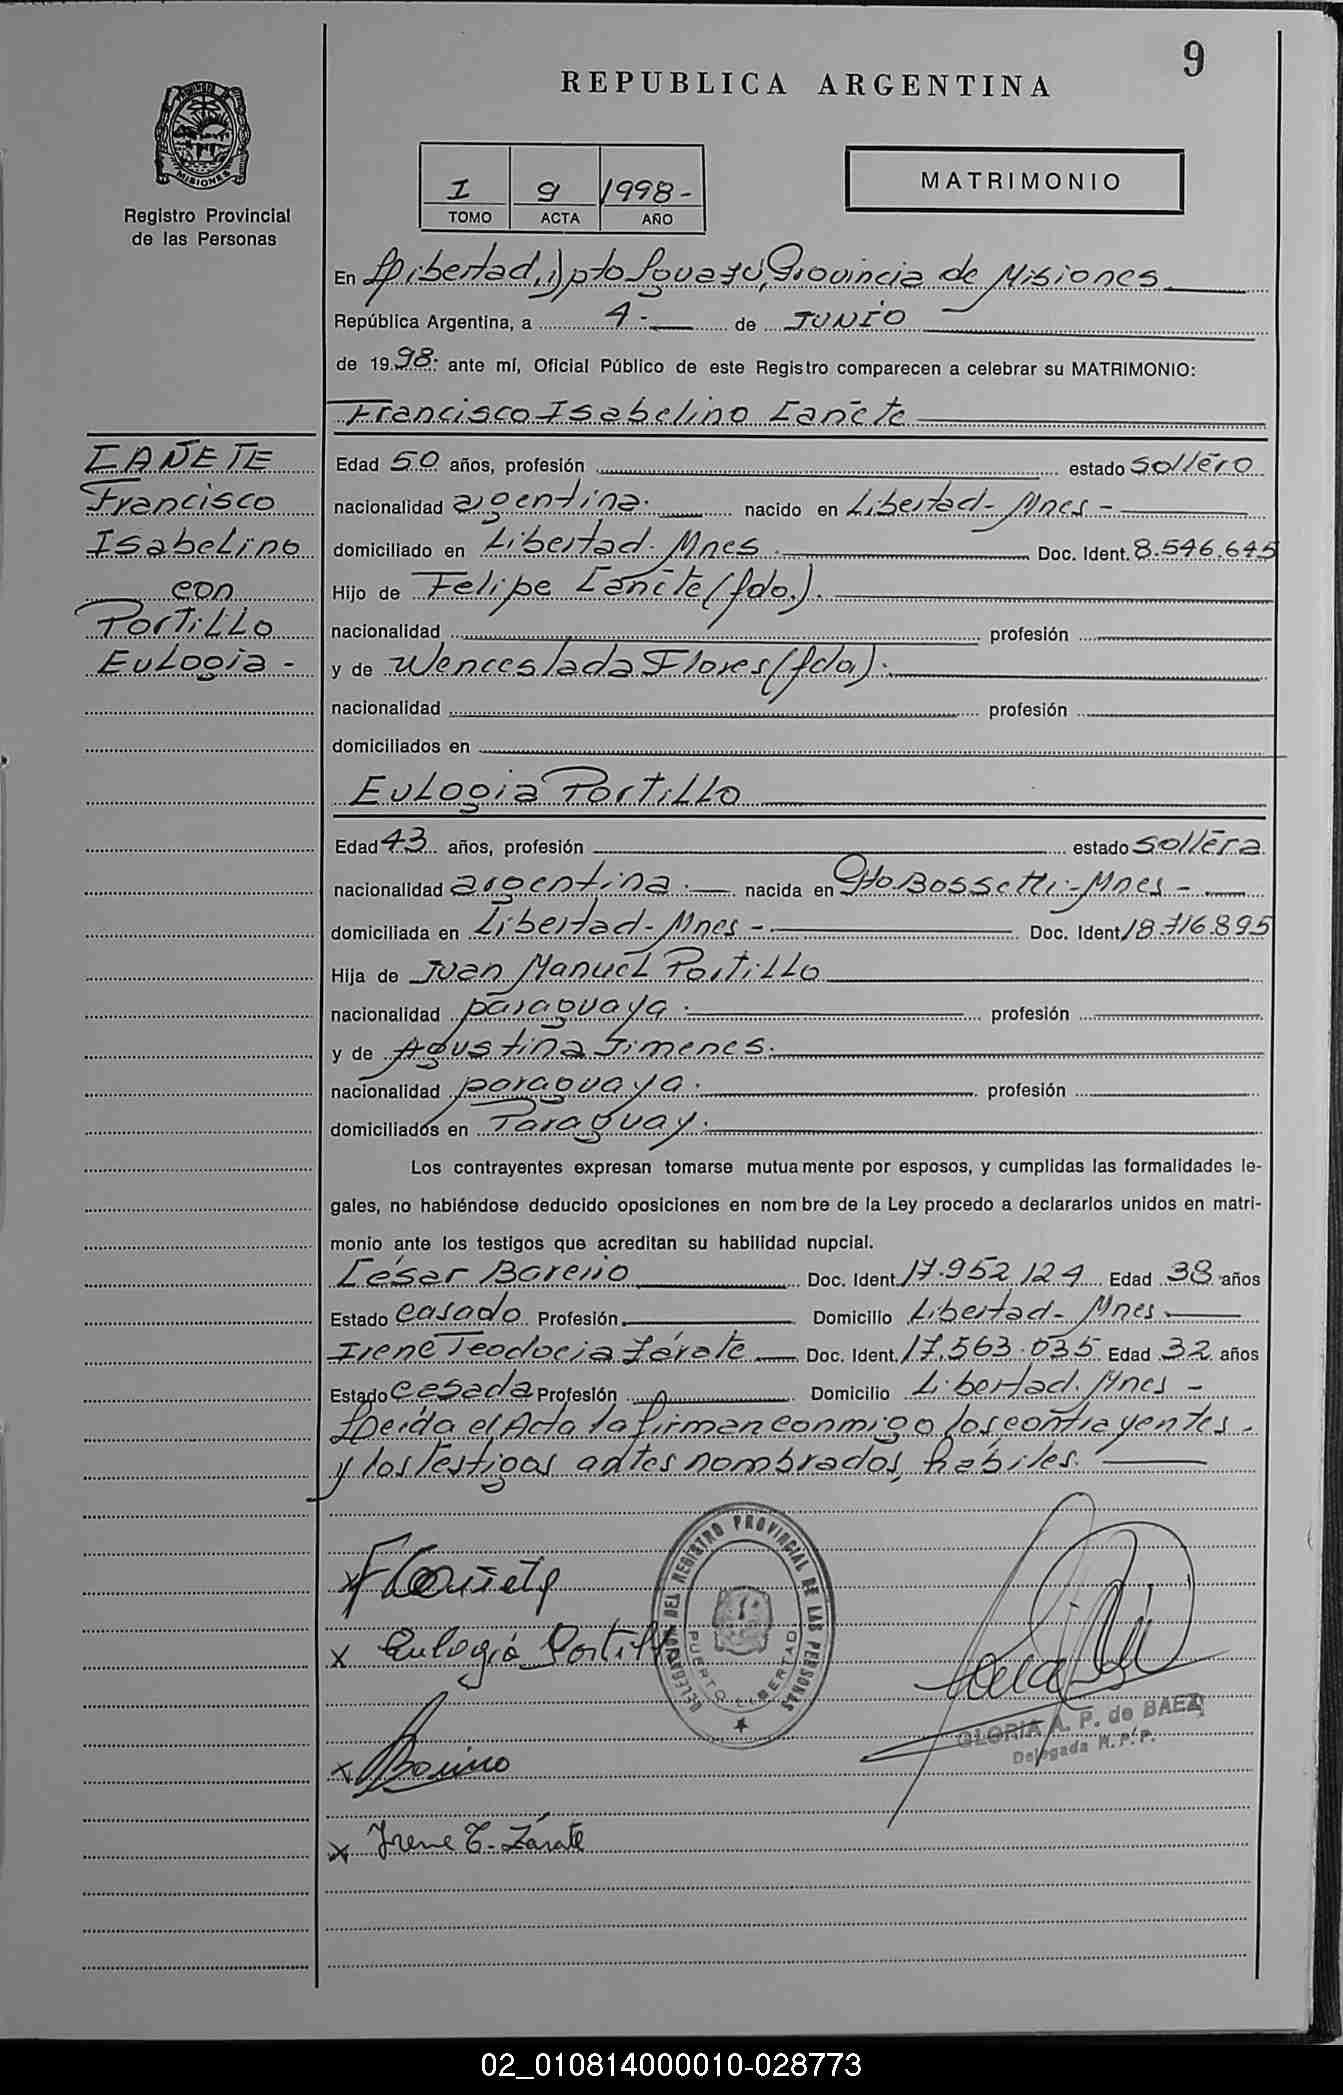 9
REPUBLICA ARGENTINA
MISIONES
Registro Provincial
de las Personas
I 9 1998-
TOMO ACTA AÑO
MATRIMONIO
En Libertad, Dpto Iguazú, Provincia de Misiones
República Argentina, a 4.- de JUNIO
de 1998: ante mí, Oficial Público de este Registro comparecen a celebrar su MATRIMONIO:
Francisco Isabelino Cañete
CAÑETE
Francisco
Isabelino
con
Portillo
Eulogia -
Edad 50 años, profesión estado soltero
nacionalidad argentina. nacido en Libertad- Mnes -
domiciliado en Libertad. Mnes. Doc. Ident. 8.546.645
Hijo de Felipe Cañete (fdo.).
nacionalidad profesión
y de Wenceslada Flores (fda).
nacionalidad profesión
domiciliados en
Eulogia Portillo
Edad 43 años, profesión estado soltera
nacionalidad argentina. nacida en Pto Bossetti- Mnes -
domiciliada en Libertad- Mnes - Doc. Ident. 18.716.895
Hija de Juan Manuel Portillo
nacionalidad paraguaya. profesión
y de Agustina Jimenes.
nacionalidad paraguaya. profesión
domiciliados en Paraguay.
Los contrayentes expresan tomarse mutuamente por esposos, y cumplidas las formalidades le-
gales, no habiéndose deducido oposiciones en nombre de la Ley procedo a declararlos unidos en matri-
monio ante los testigos que acreditan su habilidad nupcial.
César Boreiio Doc. Ident. 17.952.124 Edad 38 años
Estado casado Profesión Domicilio Libertad- Mnes.
Irene Teodocia Zárate Doc. Ident. 17.563.035 Edad 32 años
Estado casada Profesión Domicilio Libertad. Mnes -
Leída el Acta la firman conmigo los contrayentes
y los testigos antes nombrados, habiles.
DELEGACION DEL REGISTRO PROVINCIAL DE LAS PERSONAS
PUERTO LIBERTAD
x F Cañete
x Eulogia Portillo
x
GLORIA A. P. de BAEZ
Delegada R.P.P.
x Irene T. Zárate
02_010814000010-028773